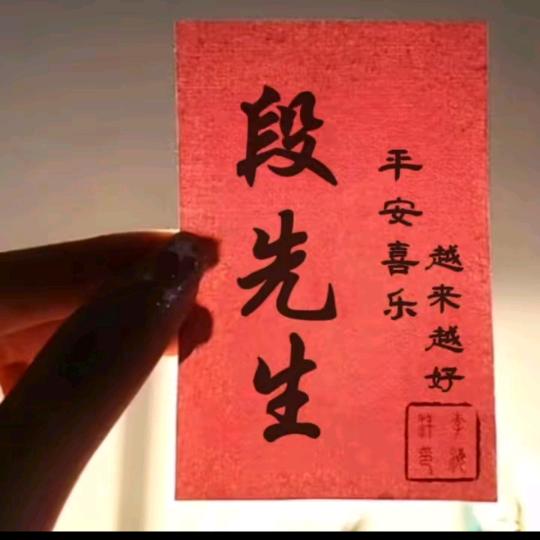 段先生
平安喜乐
越来越好